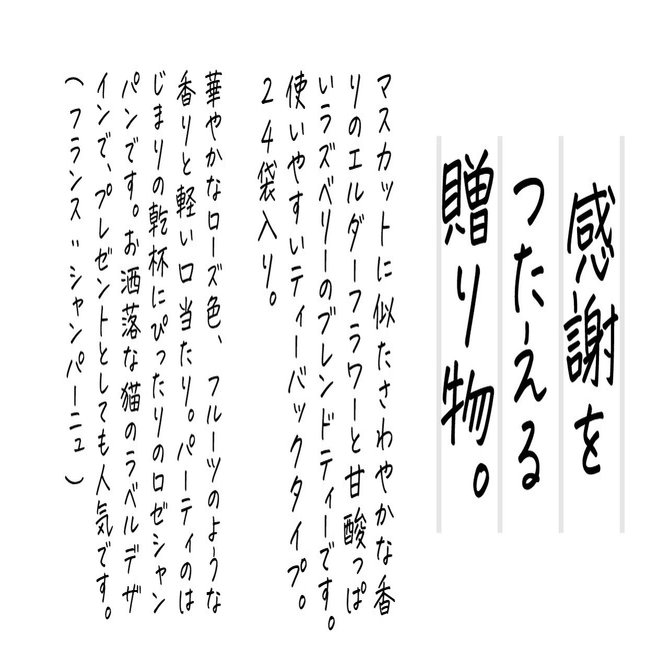 感謝を
つたえる
贈り物。
マスカットに似たさわやかな香
りのエルダーフラワーと甘酸っぱ
いラズベリーのブレンドティーです。
使いやすいティーバックタイプ。
24袋入り。
華やかなローズ色、フルーツのような
香りと軽い口当たり。パーティのは
じまりの乾杯にぴったりのロゼシャン
パンです。お洒落な猫のラベルデザ
インで、プレゼントとしても人気です。
(フランス:シャンパーニュ)